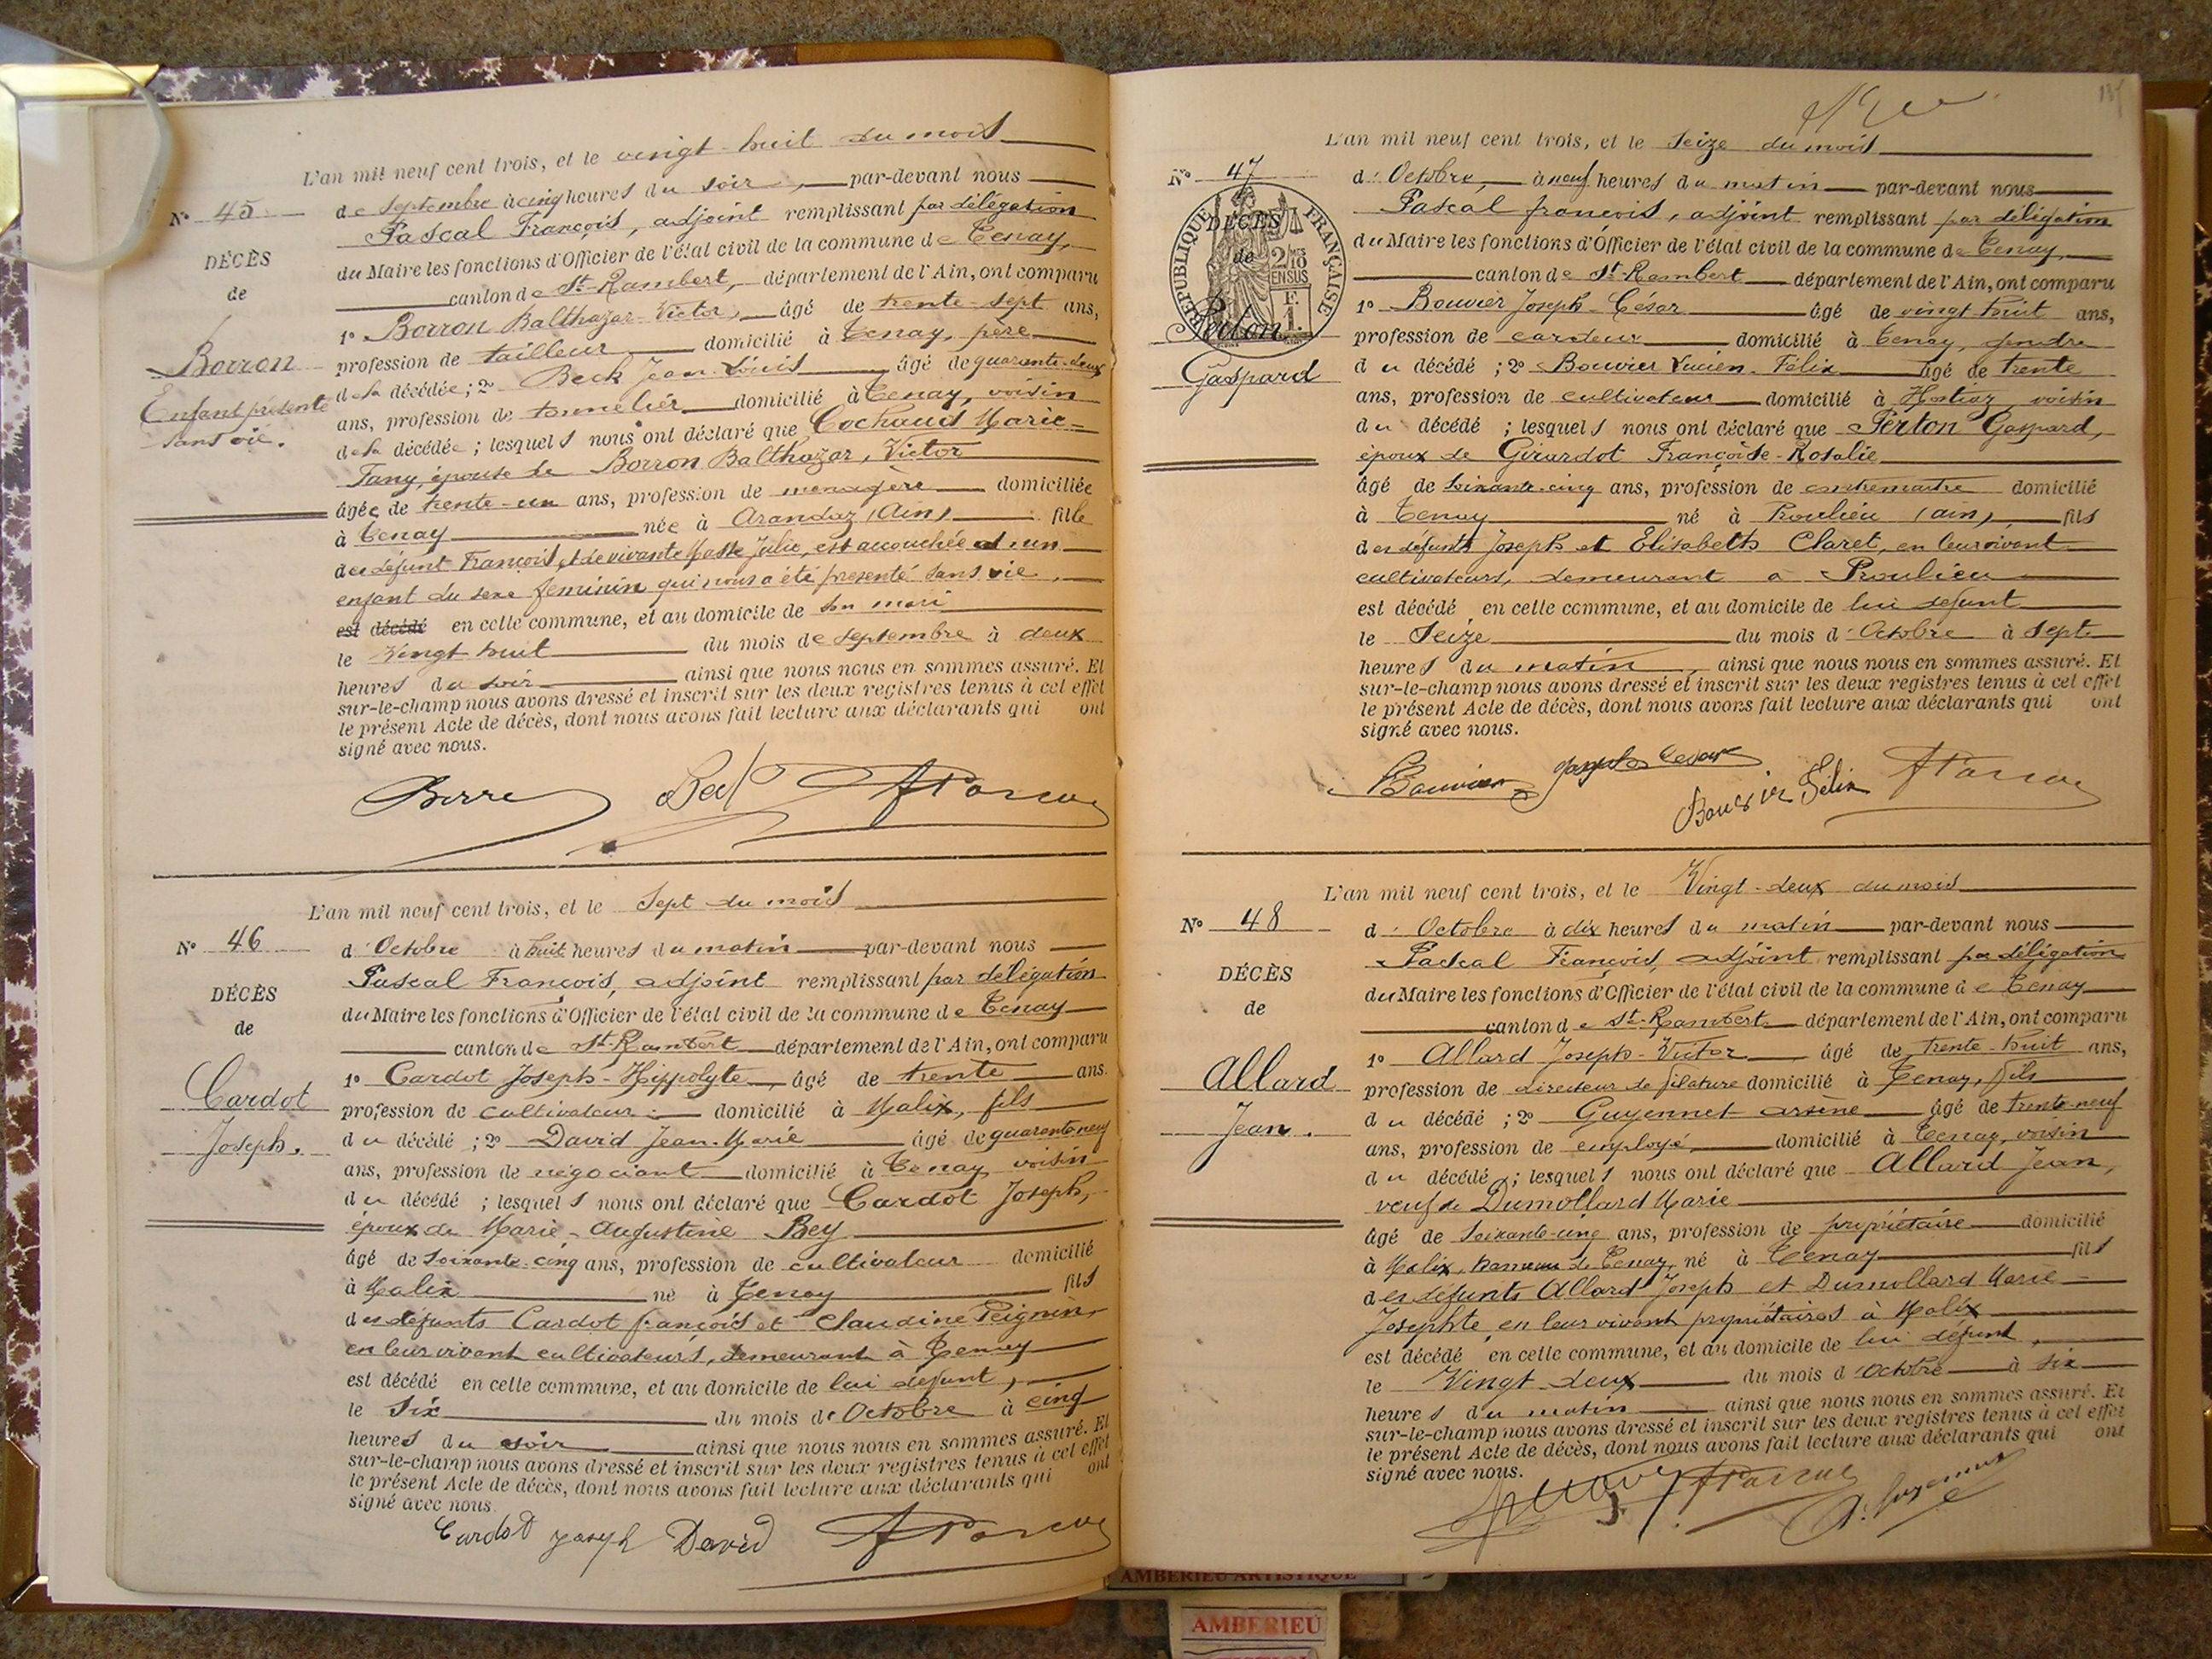 L'an mil neuf cent trois, et le vingt-huit du mois
N° 45
de Septembre à cinq heures du soir, par-devant nous
Pascal François, adjoint remplissant par délégation
DÉCÈS
du Maire les fonctions d'Officier de l'état civil de la commune de Tenay,
de
canton de St-Rambert, département de l'Ain, ont comparu
1° Borron Balthazar-Victor, âgé de trente-sept ans,
Borron
profession de tailleur domicilié à Tenay, père
Enfant présenté
de la décédée ; 2° Beck Jean-Louis âgé de quarante-deux
sans vie.
ans, profession de tonnelier domicilié à Tenay, voisin
de la décédée ; lesquels nous ont déclaré que Marie-
Fany, épouse de Borron Balthazar, Victor
âgée de trente-un ans, profession de ménagère domiciliée
à Tenay née à Arandaz (Ain) fille
de défunt François, et de vivante Julie, est accouchée d'un
enfant du sexe féminin qui nous a été présenté sans vie,
est décédé en cette commune, et au domicile de son mari
le Vingt huit du mois de Septembre à deux
heures du soir ainsi que nous nous en sommes assuré. Et
sur-le-champ nous avons dressé et inscrit sur les deux registres tenus à cet effet
le présent Acte de décès, dont nous avons fait lecture aux déclarants qui ont
signé avec nous.
L'an mil neuf cent trois, et le Sept du mois
N° 46
d'Octobre à huit heures du matin par-devant nous
Pascal François, adjoint remplissant par délégation
DÉCÈS
du Maire les fonctions d'Officier de l'état civil de la commune de Tenay
de
canton de St-Rambert département de l'Ain, ont comparu
1° Cardot Joseph-Hippolyte, âgé de trente ans.
Cardot
profession de cultivateur domicilié à Malix, fils
Joseph.
du décédé ; 2° David Jean-Marie âgé de quarante neuf
ans, profession de négociant domicilié à Tenay voisin
du décédé ; lesquels nous ont déclaré que Cardot Joseph,
époux de Marie-Augustine Bey
âgé de Soixante-cinq ans, profession de cultivateur domicilié
à Malix né à Tenay fils
des défunts Cardot françois et Claudine Peignin,
en leur vivant cultivateurs, demeurant à Tenay
est décédé en cette commune, et au domicile de lui défunt,
le Six du mois d'Octobre à cinq
heures du soir ainsi que nous nous en sommes assuré. Et
sur-le-champ nous avons dressé et inscrit sur les deux registres tenus à cet effet
le présent Acte de décès, dont nous avons fait lecture aux déclarants qui ont
signé avec nous.
Cardot Joseph David
L'an mil neuf cent trois, et le Seize du mois
N° 47
d'Octobre, à neuf heures du matin par-devant nous
RÉPUBLIQUE FRANÇAISE
2/10 EN SUS
F. 1.
Pascal françois, adjoint remplissant par délégation
DÉCÈS
du Maire les fonctions d'Officier de l'état civil de la commune de Tenay,
de
canton de St-Rambert département de l'Ain, ont comparu
1° Bouvier Joseph-César âgé de vingt huit ans,
Perton
profession de cardeur domicilié à Tenay, gendre
Gaspard
du décédé ; 2° Bouvier Lucien-Félix âgé de trente
ans, profession de cultivateur domicilié à Hostiaz voisin
du décédé ; lesquels nous ont déclaré que Perton Gaspard,
époux de Girardot Françoise-Rosalie
âgé de soixante-cinq ans, profession de contremaitre domicilié
à Tenay né à Proulieu (ain), fils
des défunts Joseph et Elisabeth Claret, en leur vivant
cultivateurs, demeurant à Proulieu
est décédé en cette commune, et au domicile de lui défunt
le Seize du mois d'Octobre à Sept
heures du matin, ainsi que nous nous en sommes assuré. Et
sur-le-champ nous avons dressé et inscrit sur les deux registres tenus à cet effet
le présent Acte de décès, dont nous avons fait lecture aux déclarants qui ont
signé avec nous.
Bouvier Joseph Cesar
Bouvier Félix
L'an mil neuf cent trois, et le Vingt-deux du mois
N° 48
d'Octobre à dix heures du matin par-devant nous
Pascal François, adjoint remplissant par délégation
DÉCÈS
du Maire les fonctions d'Officier de l'état civil de la commune de Tenay
de
canton de St-Rambert département de l'Ain, ont comparu
1° Allard Joseph-Victor âgé de trente-huit ans,
Allard
profession de directeur de filature domicilié à Tenay, fils
Jean.
du décédé ; 2° Guyennet arsène âgé de trente-neuf
ans, profession de employé, domicilié à Tenay, voisin
du décédé ; lesquels nous ont déclaré que Allard Jean,
veuf de Dumollard Marie
âgé de Soixante-cinq ans, profession de propriétaire domicilié
à Malix, hameau de Tenay, né à Tenay fils
des défunts Allard Joseph et Dumollard Marie
Josephte, en leur vivant propriétaires à Malix
est décédé en cette commune, et au domicile de lui défunt,
le Vingt-deux du mois d'Octobre à six
heures du matin ainsi que nous nous en sommes assuré. Et
sur-le-champ nous avons dressé et inscrit sur les deux registres tenus à cet effet
le présent Acte de décès, dont nous avons fait lecture aux déclarants qui ont
signé avec nous.
AMBERIEU ARTISTIQUE
AMBERIEU